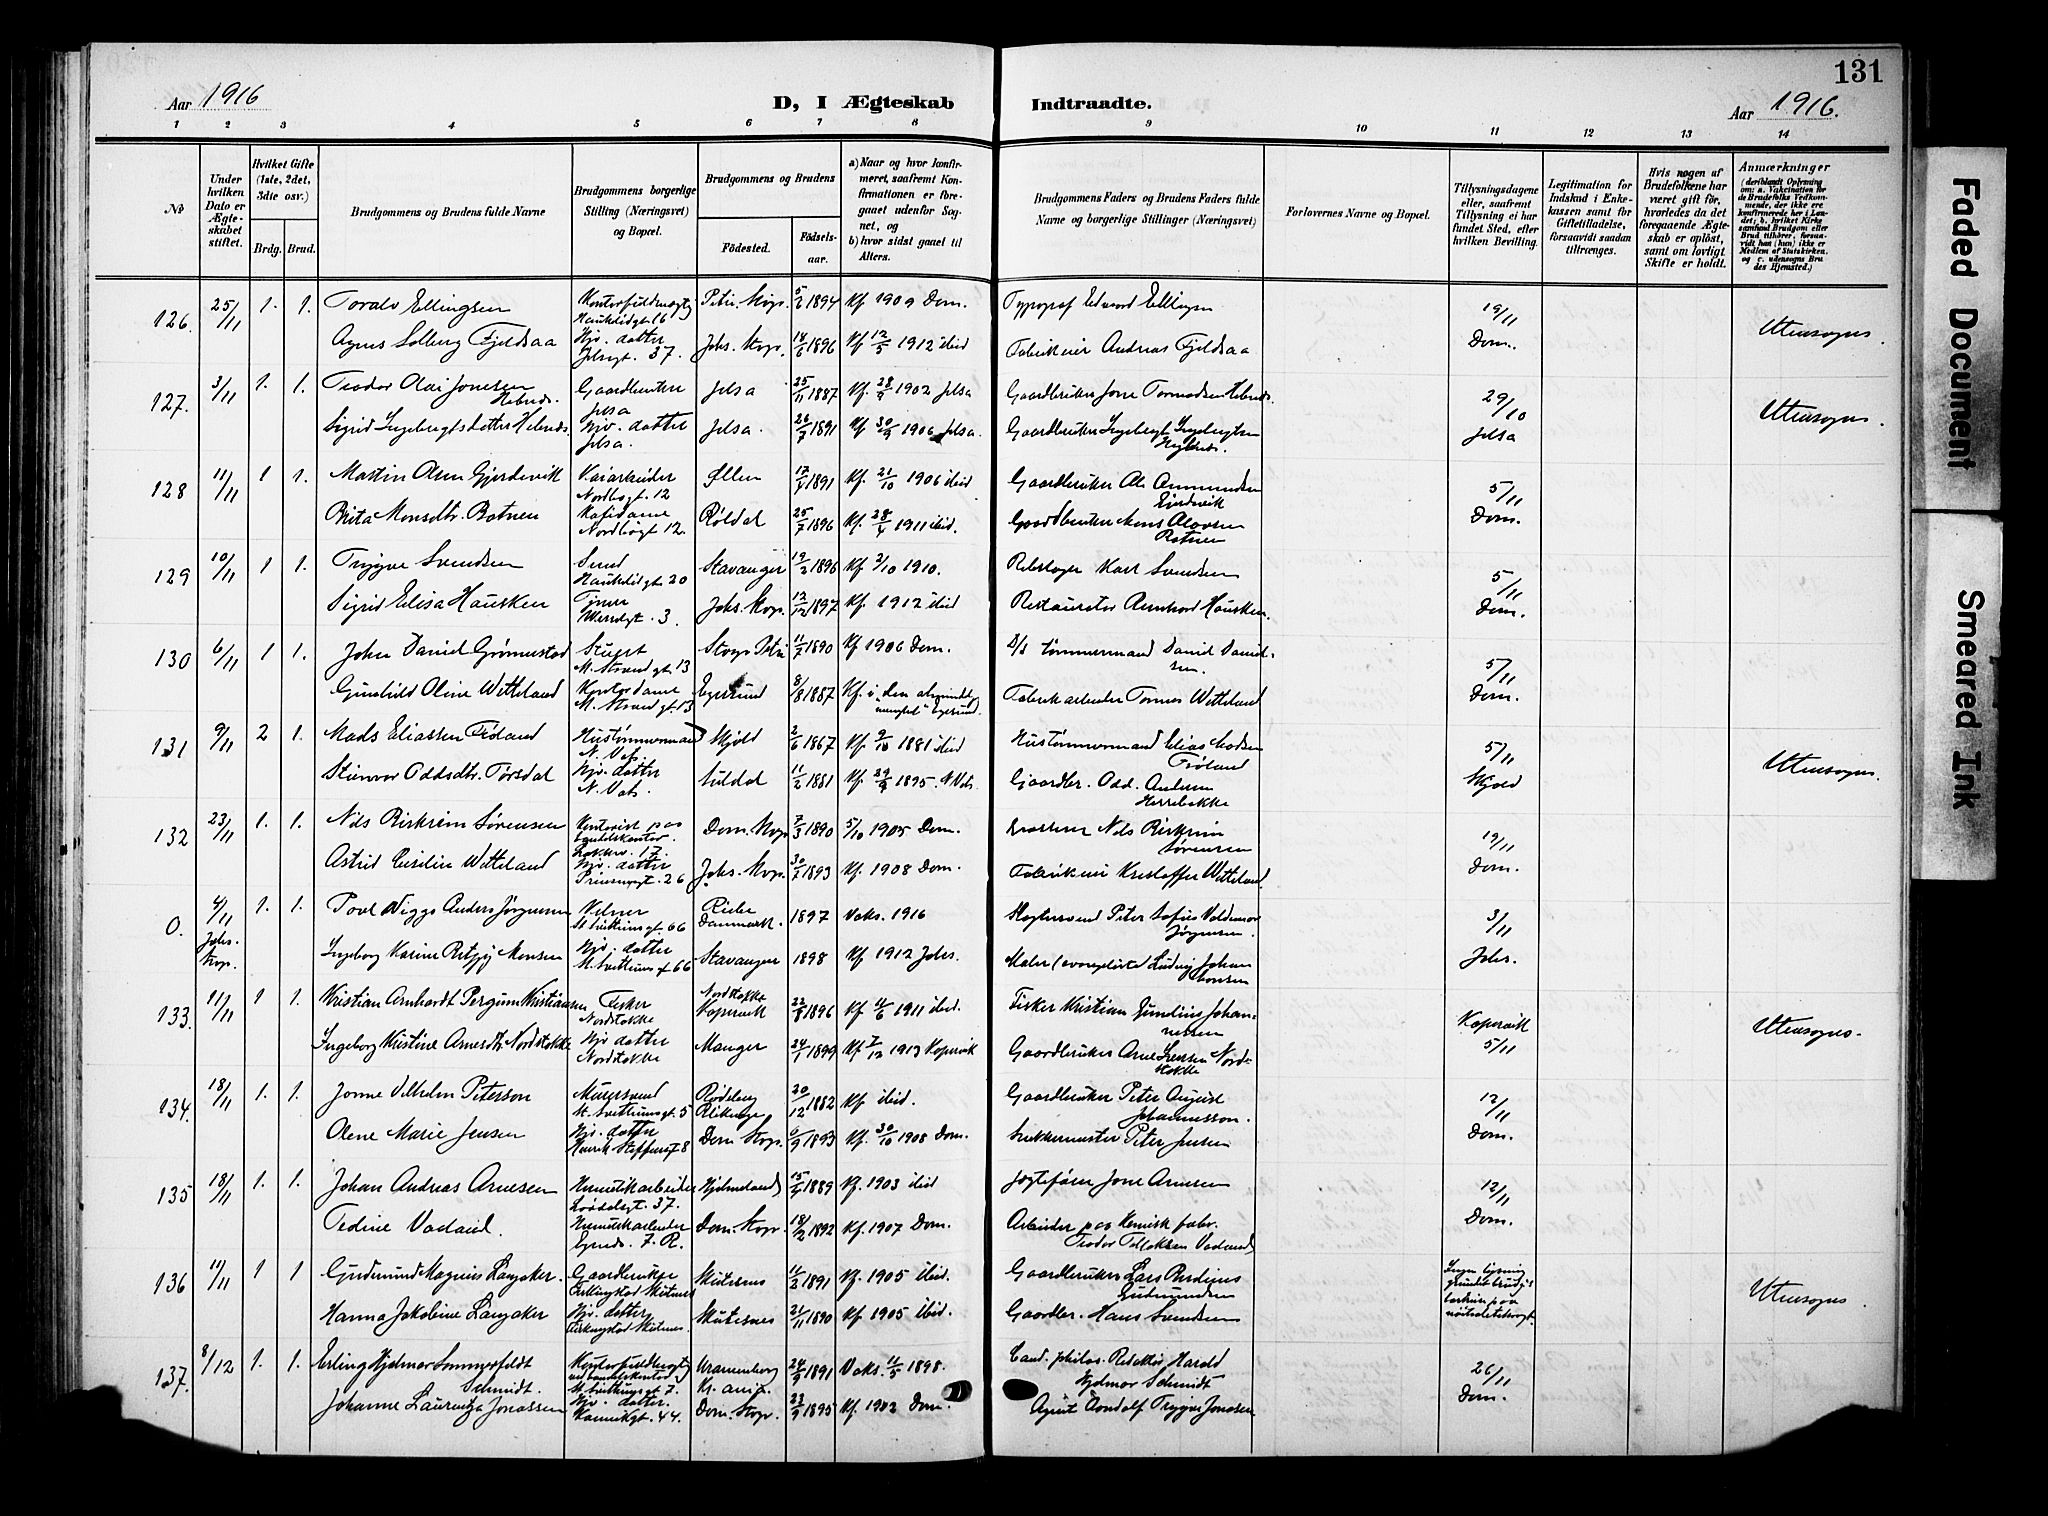 131
Aar 1916
D, I Ægteskab Indtraadte.
Aar 1916.
1 2 3 4 5 6 7 8 9 10 11 12 13 14
No
Under hvilken Dato er Ægteskabet stiftet.
Hvilket Gifte (1ste, 2det, 3die osv.)
Brdg. Brud.
Brudgommens og Brudens fulde Navne
Brudgommens borgerlige Stilling (Næringsvei) og Bopæl.
Brudgommens og Brudens
Födested.
Födselsaar.
a) Naar og hvor konfirmeret, saafremt Konfirmationen er foregaaet udenfor Sognet, og
b) hvor sidst gaaet til Alters.
Brudgommens Faders og Brudens Faders fulde Navne og borgerlige Stillinger (Næringsvei)
Forlovernes Navne og Bopæl.
Tillysningsdagene eller, saafremt Tillysning ei har fundet Sted, efter hvilken Bevilling.
Legitimation for Indskud i Enkekassen samt for Giftetilladelse, forsaavidt saadan tiltrænges.
Hvis nogen af Brudefolkene har været gift før, hvorledes da det foregaaende Ægteskab er opløst, samt om lovligt Skifte er holdt.
Anmærkninger
126. 25/11 1. 1. Toralv Ellingsen Petri. Skogs. 5/2 1894 Kf 1909 Dom. Typograf Edvard Ellingsen 19/11 Dom. Utensogns.
Haukeligt 16
Agnes Solberg Fjeldsaa Hjv. datter Jelsagt. 37. Johs. Skogs. 14/6 1896 Kf 12/5 1912 ibid Fabrikeier Andreas Fjeldsaa
127. 3/11 1. 1. Teodor Olai Jonesen Gaardbruker Jelsa Jelsa 25/11 1887 Kf. 28/9 1902 Jelsa 29/10 Jelsa Utensogns.
Hjv. datter Jelsa. Jelsa. 26/7 1891 Kf 30/9 1906 Jelsa. Gaardbruker Ingebrigt Ingebrigtsen
128 11/11 1 1. Martin Olsen Gjerdevik Kaiarbeider Nordbøgt. 12 Ølen 17/7 1891 Kf. 21/10 1906 ibid Gaardbruker Ole Ammundsen Gjerdevik 5/11 Dom.
Brita Monsdtr. Botnen Kafedame Nordbøgt 12. Røldal 25/7 1896 Kf. 28/4 1911 ibid. Gaardbruker Mons Olavsen Botnen
129 10/11 1 1. Trygve Svendsen Haukeligt 20 Stavanger 19/2 1896 Kf 2/10 1910. Rebslager Karl Svendsen 5/11 Dom.
Sigrid Elisa Hausken 3. Johs. Skogs. 12/12 1897 Kf. 1912 ibid Restauratør Hausken
130 6/11 1 1. John Daniel Grømmestad Stuert N. Strandgt 13 Skogs Petri 11/7 1890 Kf 1906 Dom. D/s tømmermand David Davidsen 5/11 Dom.
Gunhild Oline Wetteland Kontordame N. Strandgt. 13 Egersund 8/8 1887 Egersund Fabrikarbeider Tønnes Wetteland
131 9/11 2 1. Mads Eliassen Frøland Hustømmermand N. Vats. Skjold 2/6 1867 Kf. 9/10 1881 ibid Hustømmermand Elias Madsen Frøland 5/11 Skjold Utensogns.
Steinvor Oddsdtr. Førsdal Hjv. datter N. Vats. Suldal 11/2 1881 Kf. 29/9 1895. N. Vats. Gaardbr. Odd. Andersen Herrebakke
132 23/11 1. 1. Nils Birkrem Sørensen Kontorist paa 17. Dom. Skogs 7/3 1890 5/10 1905 Dom. Nils Birkrem Sørensen 19/11 Dom.
Astrid Cecilie Wetteland Hjv. datter Prinsensgt. 26 Johs. Skogs. 30/7 1893 Kf. 1908 Dom. Fabrikeier Kristoffer Wetteland.
0. 4/11 Johs. Skogs. 1. 1. Povl Viggo Anders Jørgensen St. Svithunsgt. 66 Danmark. 1897 Vaks. 1916 Peter Sofus Valdemar Jørgensen. 3/11 Johs.
Ingeborg Karine Monsen Hjv. datter St. Svithunsgt 66 Stavanger 1898 Kf 1912 Johs. Maler (evangelist) Ludvig Johan Monsen
133. 11/11 1 1. Kristian Arnhardt Bergum Kristiansen Fisker Nordstokke Nordstokke Kopervik 22/8 1896 Kf 11/6 1911 ibid. Fisker Kristian Gundius Johannessen Kopervik 5/11 Utensogns.
Ingeborg Kristine Arnesdtr. Nordstokke Hjv datter Nordstokke Manger 24/1 1899 Kf 7/12 1913 Kopervik Gaardbruker Arne Larsen Nordstokke
134. 18/11 1. 1. Jonne Vilhelm Peterson Murersvend St. Svithunsgt. 5 Rödeby Blekinge 20/12 1882 Kf ibid. Gaardbruker Peter August Johannesson. 12/11 Dom.
Olene Marie Jensen Hjv. datter Henrik Steffensgt 8 Dom. Skogs. 6/9 1893 Kf. 30/10 1908 Dom. Peter Jensen
135 18/11 1. 1. Johan Andreas Arnesen Hermetikarbeider Lövdalsgt. 37. Hjelmeland 15/4 1889 Kf. 1903 ibid Jagtefører Jone Arnesen 12/11 Dom.
Tedine Vadland. Hermetikarbeider 7. R. Dom. Skogs. 18/2 1892 Kf. 1907 Dom. Arbeider paa Kemisk fabr. Teodor Tollaksen Vadland
136 11/11 1 1 Gudmund Magnus Langaker. Gaardbruker Ferkingstad Skudnes Skudesnes 11/2 1891 Kf. 1905 ibid. Gaardbruker Lars Gudmundsen Ingen lysning Utensogns.
Hanna Jakobine Langaker Hjv. datter Ferkingstad Skudnes. Skudesnes 21/11 1890 Kf. 1905 ibid. Gaardbr. Hans Svendsen
137. 8/12 1. 1. Erling Hjalmar Sommerfeldt Schmidt. St. Svithunsgt 7. Uranienborg Kr.ania. 24/9 1891 Vaks. 11/5 1898. Cand. philos. Redaktør Harald Hjalmar Schmidt 26/11 Dom.
Johanne Lauentza Jonassen Hjv. datter. Kannikgt. 44. Dom. Skogs. 23/9 1895 Kf. 1902 Dom. Agent Trygve Jonassen
Faded Document
Smeared Ink